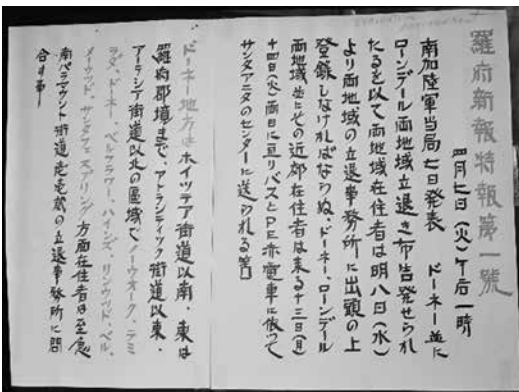 羅府新報特報第一號
四月七日(火)午后一時
南加陸軍当局七日発表 ドーネー並に
ローンデール両地域立退き布告発せられ
たるを以て両地域在住者は明八日(水)
より両地域の立退事務所に出頭の上
登録しなければならぬ、ドーネー、ローンデール
両地域並にその近郊在住者は来る十三日(月)
十四日(火)両日に亘りバスとPE赤電車に依って
サンタアニタのセンターに送られる筈
ドーネー地方は ホイツテア街道以南、東は
羅府郡境まで、アトランティック街道以東、
アーテシア街道以北の區域で ノーウオーク、テミ
ラダ、ドネー、ベルフラワー、ハインズ、リンウッド、ベル、
メーウッド、サンタフェスプリング 方面在住者は至急
南パラマウント街道 壱壱蔵の立退事務所に問
合す事